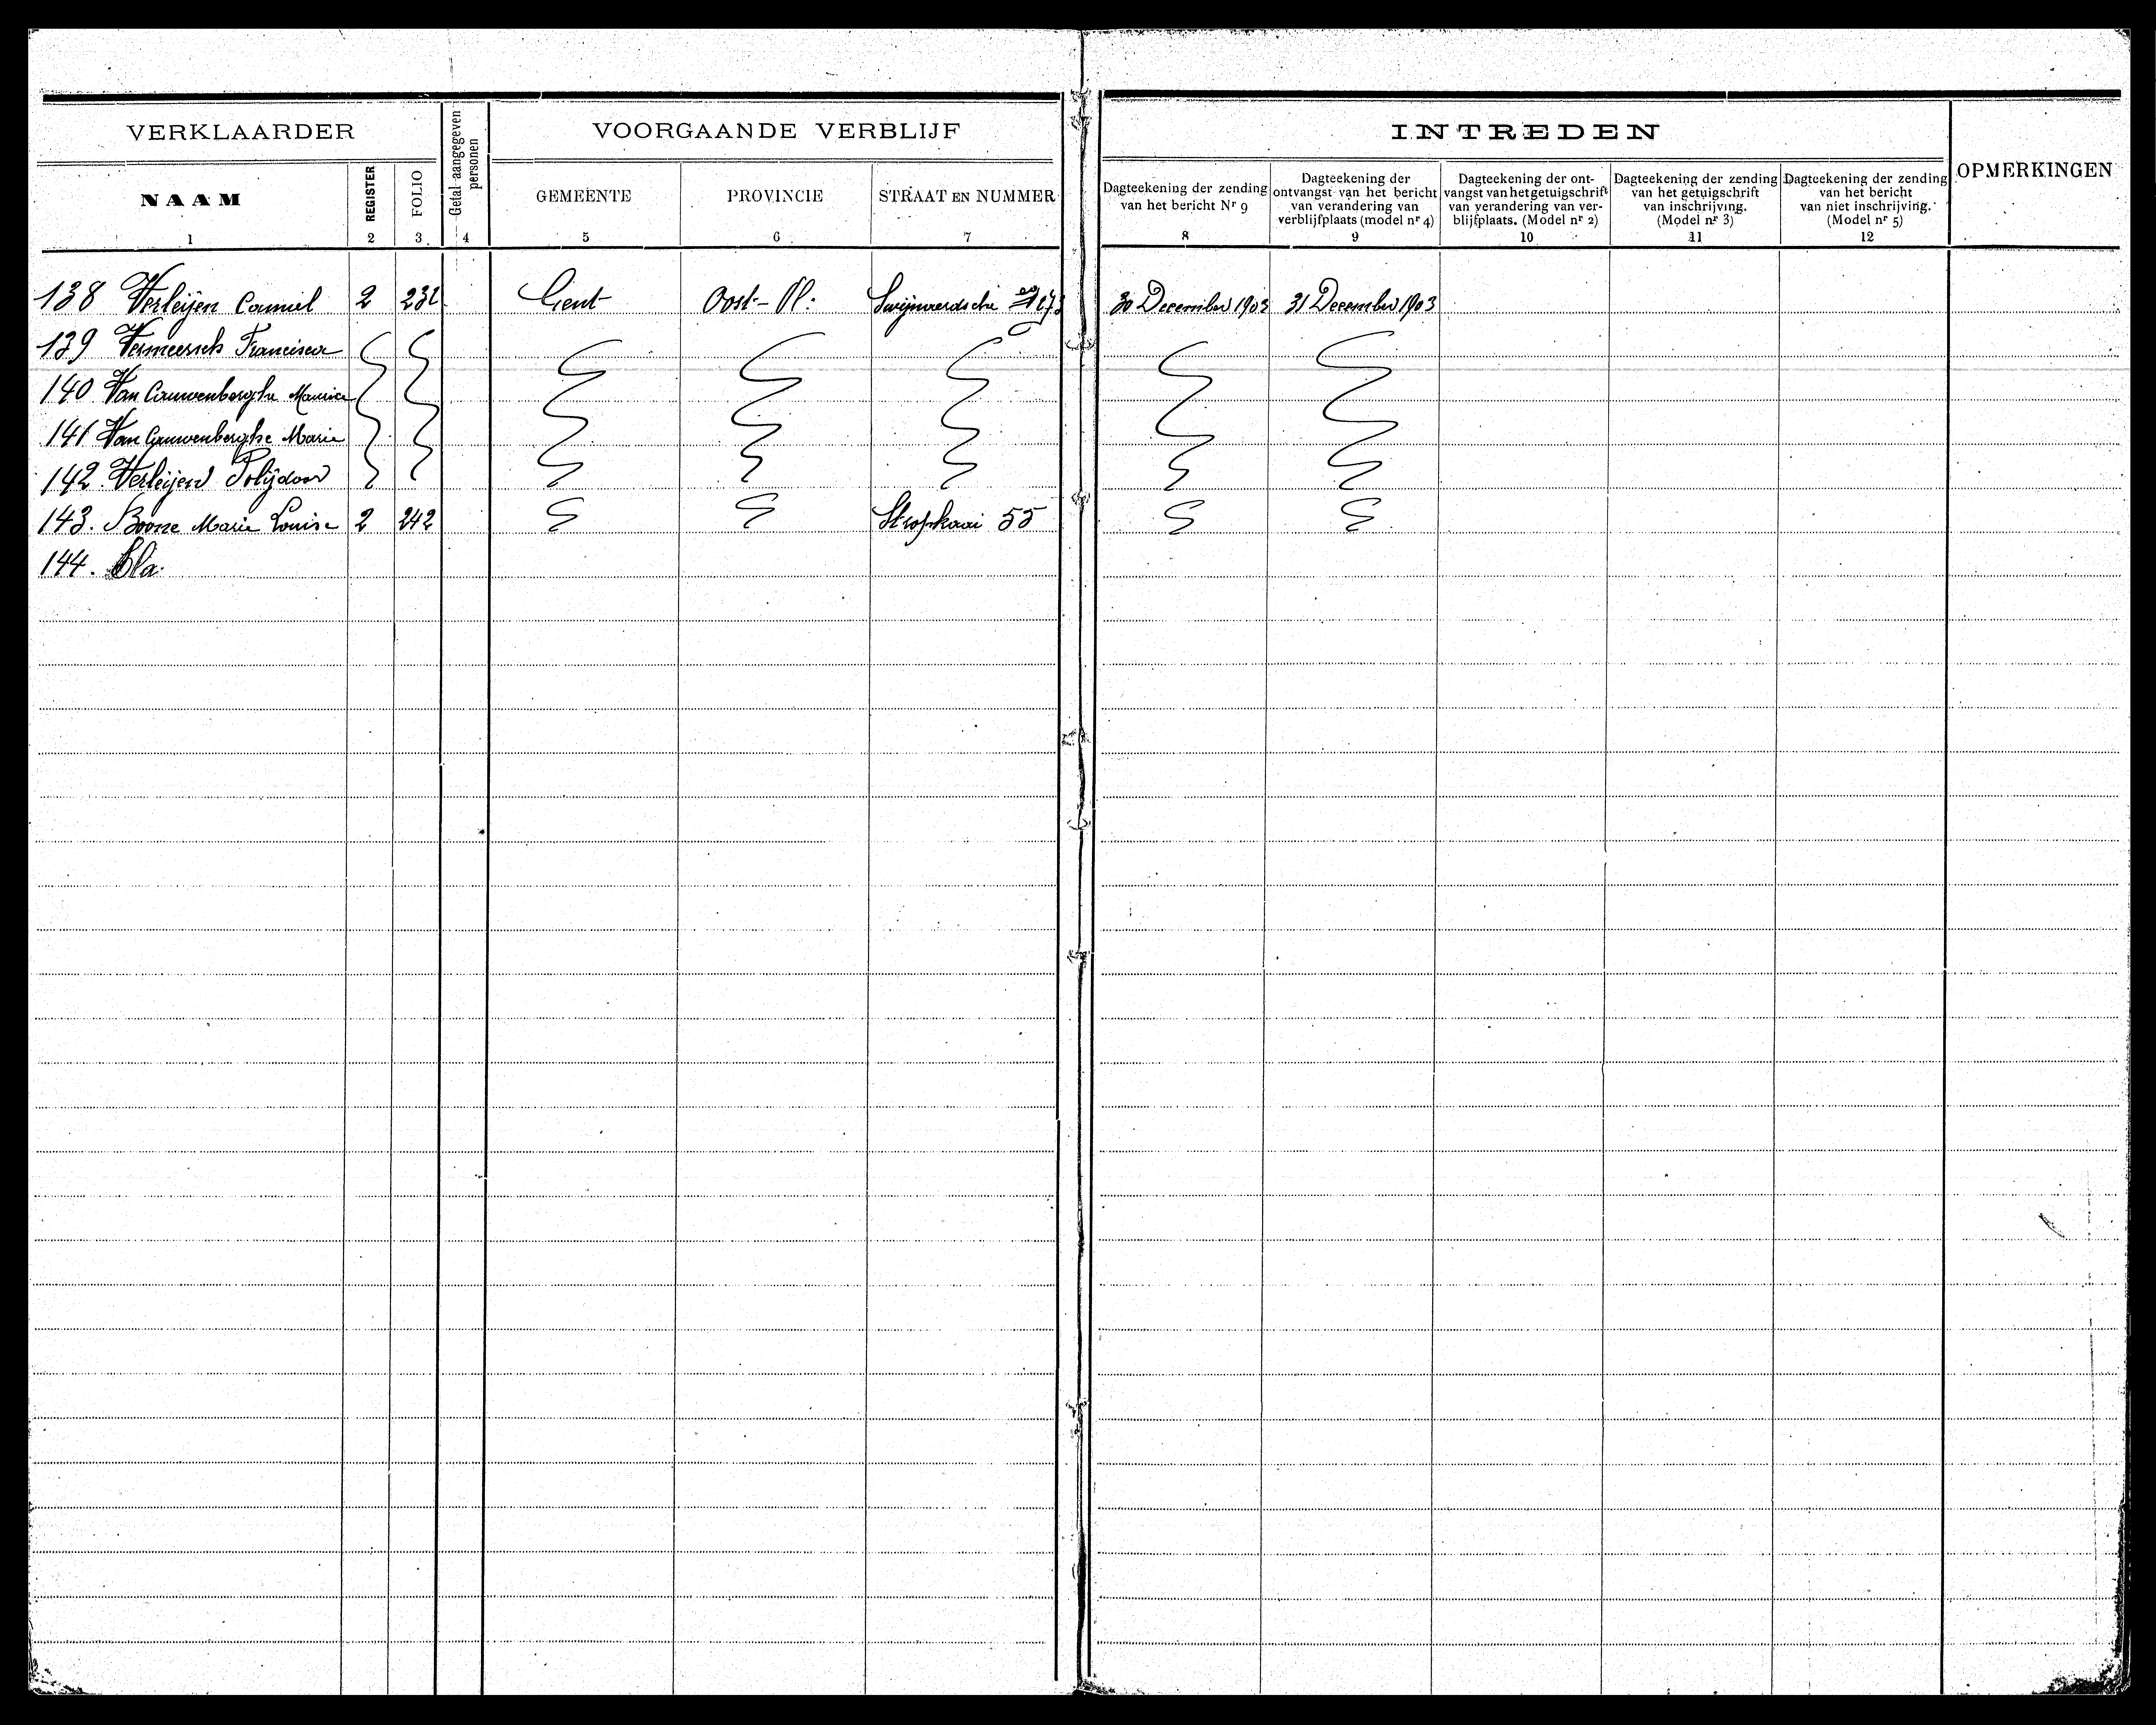 VERKLAARDER
Getal aangegeven personen
VOORGAANDE VERBLIJF
INTREDEN
OPMERKINGEN
NAAM
REGISTER
FOLIO
GEMEENTE
PROVINCIE
STRAAT EN NUMMER
Dagteekening der zending
van het bericht Nr 9
Dagteekening der
ontvangst van het bericht
van verandering van
verblijfplaats (model nr 4)
Dagteekening der ont-
vangst van het getuigschrift
van verandering van ver-
blijfplaats. (Model nr 2)
Dagteekening der zending
van het getuigschrift
van inschrijving.
(Model nr 3)
Dagteekening der zending
van het bericht
van niet inschrijving.
(Model nr 5)
1 2 3 4 5 6 7 8 9 10 11 12
138 Verleijen Camiel 2 232 Gent Oost-Vl: 30 December 1903 31 December 1903
139 Vermeersch Francisca
140 Van Cauwenberghe Maurice
141 Van Cauwenberghe Marie
142. Verleijen Polijdoor
143. Boone Marie Louise 2 242 Stropkaai 55
144.